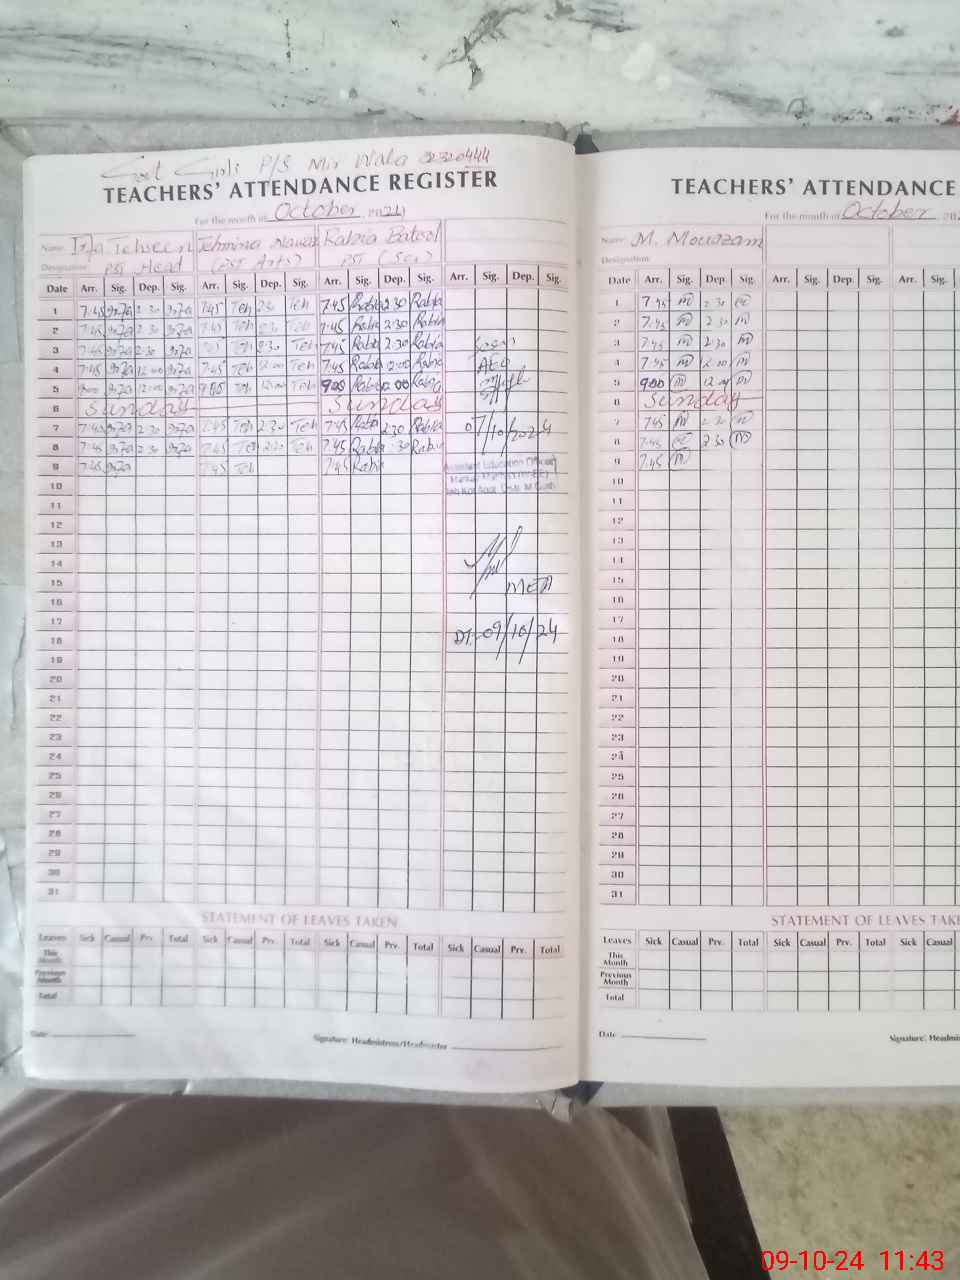 Govt Girls P/S Mir Wala 32320444
TEACHERS' ATTENDANCE REGISTER
For the month of October 2024
Name: Tehseen Tehmina Nawaz Rabia Batool
Designation: PST Head (PST Arts) PST (Sci)
Date Arr. Sig. Dep. Sig. Arr. Sig. Dep. Sig. Arr. Sig. Dep. Sig. Arr. Sig. Dep. Sig.
1 7:45 2:30 7:45 Teh 2:30 Teh 7:45 Rabia 2:30 Rabia
2 7:45 2:30 7:45 Teh 2:30 Teh 7:45 Rabia 2:30 Rabia
3 7:45 2:30 Teh 2:30 Teh 7:45 Rabia 2:30 Rabia Seen
4 7:45 12:00 7:45 Teh 12:00 Teh 7:45 Rabia 12:00 Rabia AEO
5 9:00 12:00 9:00 Teh 12:00 Teh 9:00 Rabia 12:00 Rabia
6 Sunday Sunday
7 7:45 2:30 7:45 Teh 2:30 Teh 7:45 Rabia 2:30 Rabia 07/10/2024
8 7:45 2:30 7:45 Teh 2:30 Teh 7:45 Rabia 2:30 Rabia
9 7:45 7:45 Teh 7:45 Rabia
Assistant Education Officer
10
11
12
13
14
15
16
17
18 Dt. 09/10/24
19
20
21
22
23
24
25
26
27
28
29
30
31
STATEMENT OF LEAVES TAKEN
Leaves Sick Casual Prv. Total Sick Casual Prv. Total Sick Casual Prv. Total Sick Casual Prv. Total
This Month
Previous Month
Total
Date
Signature: Headmistress/Headmaster
TEACHERS' ATTENDANCE
For the month of October
Name: M. Mouazam
Designation:
Date Arr. Sig. Dep. Sig. Arr. Sig. Dep. Sig. Arr. Sig.
1 7:45 m 2:30
2 7:45 m 2:30 m
3 7:45 m 2:30 m
4 7:45 m 12:00 m
5 9:00 m 12:00 m
6 Sunday
7 7:45 m 2:30 m
8 7:45 2:30 m
9 7:45 m
10
11
12
13
14
15
16
17
18
19
20
21
22
23
24
25
26
27
28
29
30
31
STATEMENT OF LEAVES
Leaves Sick Casual Prv. Total Sick Casual Prv. Total Sick Casual
This Month
Previous Month
Total
Date
Signature:
09-10-24 11:43